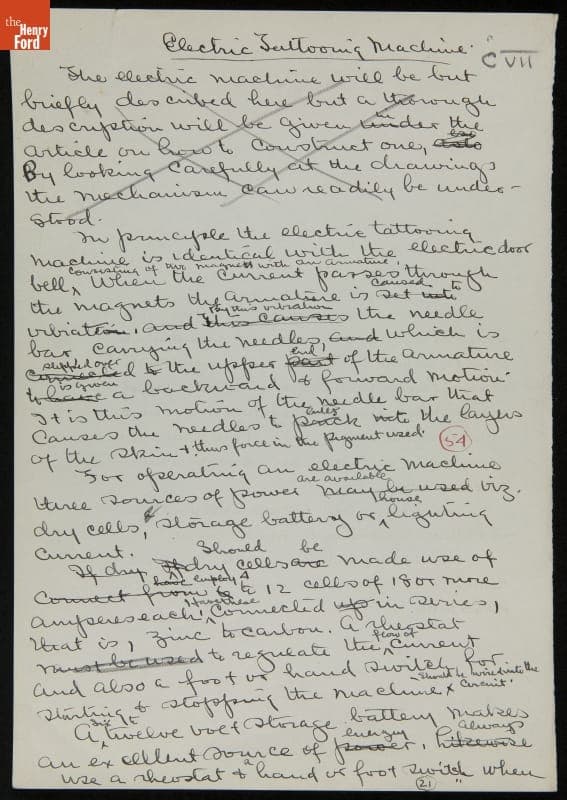 the
Henry
Ford
Electric Tattooing Machine.
C VII
The electric machine will be but
briefly described here but a thorough
description will be given under in the
article on how to construct one,
By looking carefully at the drawings
the mechanism can readily be under-
stood.
In principle the electric tattooing
machine is identical with the electric door
consisting of two magnets with an armature.
bell, When the current passes through
caused to
the magnets the armature is set into
by this vibration
vibration, and this causes the needle
bar carrying the needles, and which is
slipped over end
connected to the upper part of the armature
is given
to have a backward & forward motion.
It is this motion of the needle bar that
enter
causes the needles to prick into the layers
of the skin & thus force in the pigment used.
54
For operating an electric machine
are available
three sources of power may be used viz.
house
dry cells, storage battery or lighting
current.
Should be
If dry cells are made use of
have employed
connect from 6 to 12 cells of 18 or more
Have these
amperes each, connected up in series,
that is, zinc to carbon. A rheostat
flow of
must be used to regulate the current
and also a foot or hand switch for
should be wired into the
starting & stopping the machine & circuit.
Six
A twelve volt storage battery makes
energy always
an excellent source of power, likewise
use a rheostat & a hand or foot switch when
21